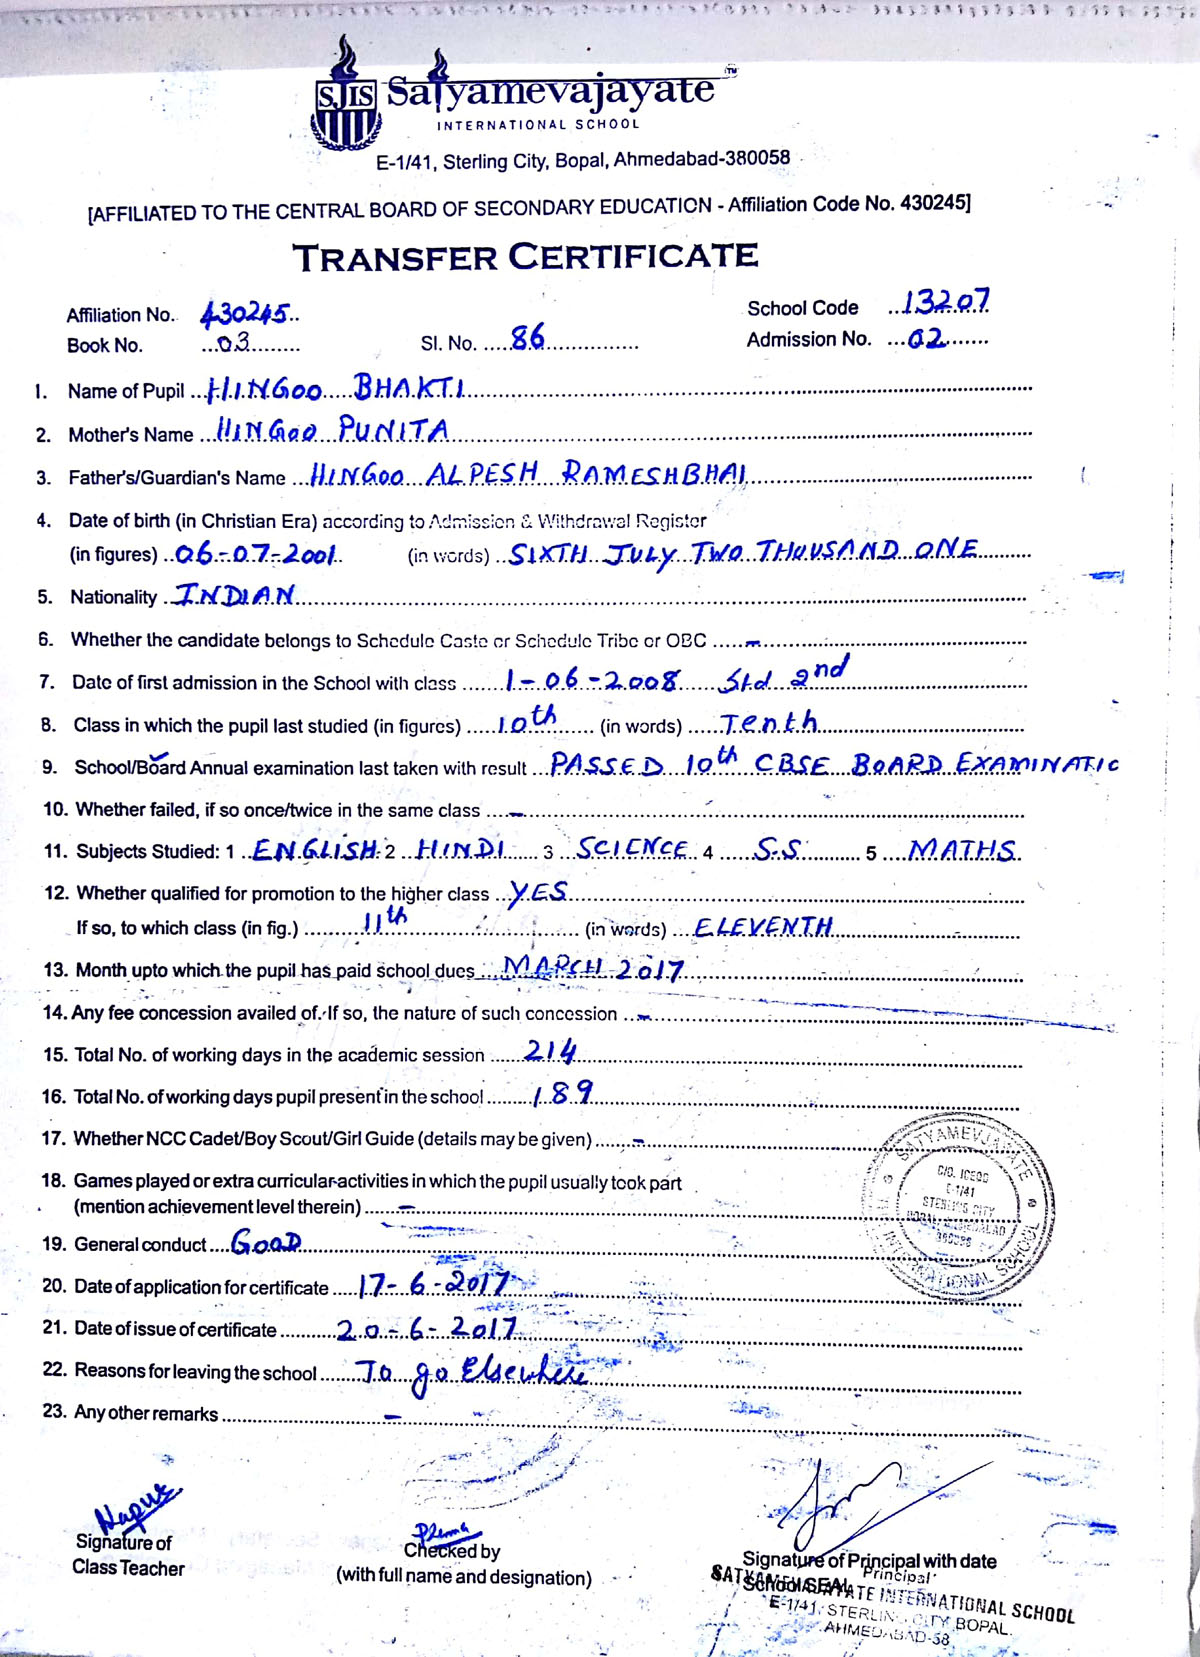 SJIS Satyamevajayate ™
INTERNATIONAL SCHOOL
E-1/41, Sterling City, Bopal, Ahmedabad-380058
[AFFILIATED TO THE CENTRAL BOARD OF SECONDARY EDUCATION - Affiliation Code No. 430245]
TRANSFER CERTIFICATE
Affiliation No. 430245 School Code 13207
Book No. 03 Sl. No. 86 Admission No. 02
1. Name of Pupil HINGOO BHAKTI
2. Mother's Name HINGOO PUNITA
3. Father's/Guardian's Name HINGOO ALPESH RAMESHBHAI
4. Date of birth (in Christian Era) according to Admission & Withdrawal Register
(in figures) 06-07-2001 (in words) SIXTH JULY TWO THOUSAND ONE
5. Nationality INDIAN
6. Whether the candidate belongs to Schedule Caste or Schedule Tribe or OBC -
7. Date of first admission in the School with class 1-06-2008 Std 2nd
8. Class in which the pupil last studied (in figures) 10th (in words) Tenth
9. School/Board Annual examination last taken with result PASSED 10th CBSE BOARD EXAMINATIO
10. Whether failed, if so once/twice in the same class -
11. Subjects Studied: 1 ENGLISH 2 HINDI 3 SCIENCE 4 S.S 5 MATHS
12. Whether qualified for promotion to the higher class YES
If so, to which class (in fig.) 11th (in words) ELEVENTH
13. Month upto which the pupil has paid school dues MARCH 2017
14. Any fee concession availed of. If so, the nature of such concession -
15. Total No. of working days in the academic session 214
16. Total No. of working days pupil present in the school 189
17. Whether NCC Cadet/Boy Scout/Girl Guide (details may be given) -
18. Games played or extra curricular-activities in which the pupil usually took part
(mention achievement level therein) -
19. General conduct GOOD
20. Date of application for certificate 17-6-2017
21. Date of issue of certificate 20-6-2017
22. Reasons for leaving the school To go Elsewhere
23. Any other remarks -
SATYAMEVJAYATE INTERNATIONAL SCHOOL
E-1/41
STERLING CITY
Signature of
Class Teacher
Checked by
(with full name and designation)
Signature of Principal with date
Principal
School SEAL
SATYAMEVJAYATE INTERNATIONAL SCHOOL
E-1/41, STERLING CITY BOPAL.
AHMEDABAD-58